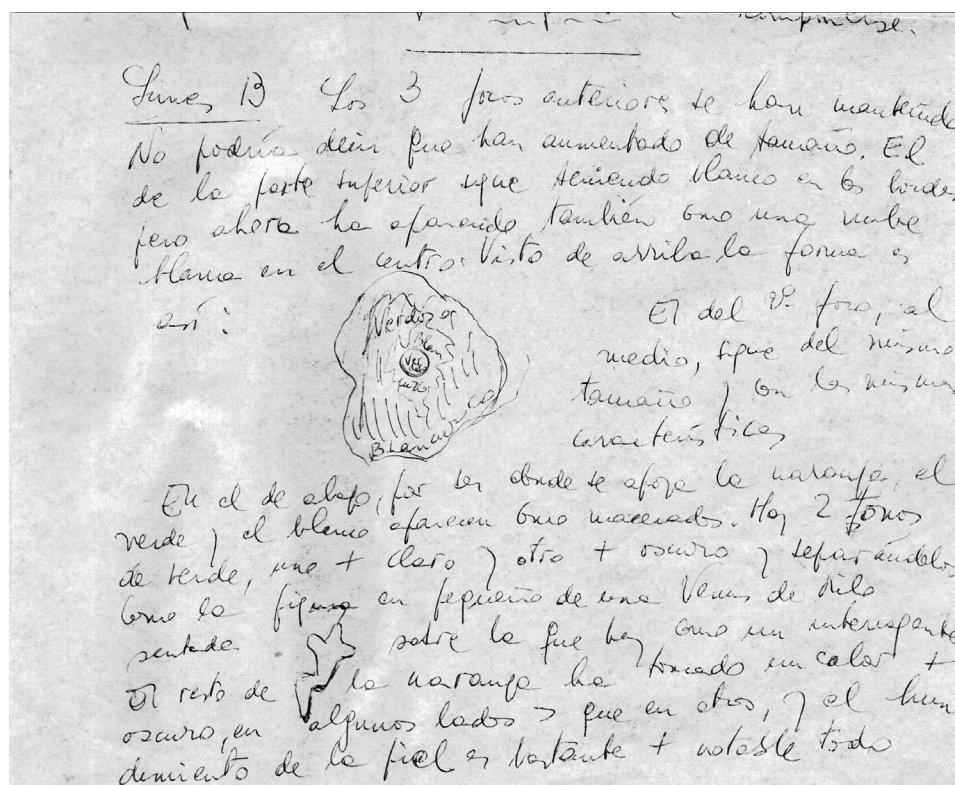 descomponerse.
Lunes 13 Los 3 focos anteriores se han mantenido
No podría decir que han aumentado de tamaño. El
de la parte superior sigue teniendo blanco en los bordes
pero ahora ha aparecido también como una nube
blanca en el centro. Visto de arriba la forma es
así:
Verdoso
Blan
Blancuzco
El del 2º foco, al
medio, sigue del mismo
tamaño y con las mismas
características
En el de abajo, por ser donde se apoya la naranja, el
verde y el blanco aparecen como macerados. Hay 2 tonos
de verde, uno + claro y otro + oscuro y separándolos
como la figura en pequeño de una Venus de Milo
sentada sobre la que hay como un interrogante
El resto de la naranja ha tomado un color +
oscuro, en algunos lados > que en otros, y el hun
dimiento de la piel es bastante + notable todo